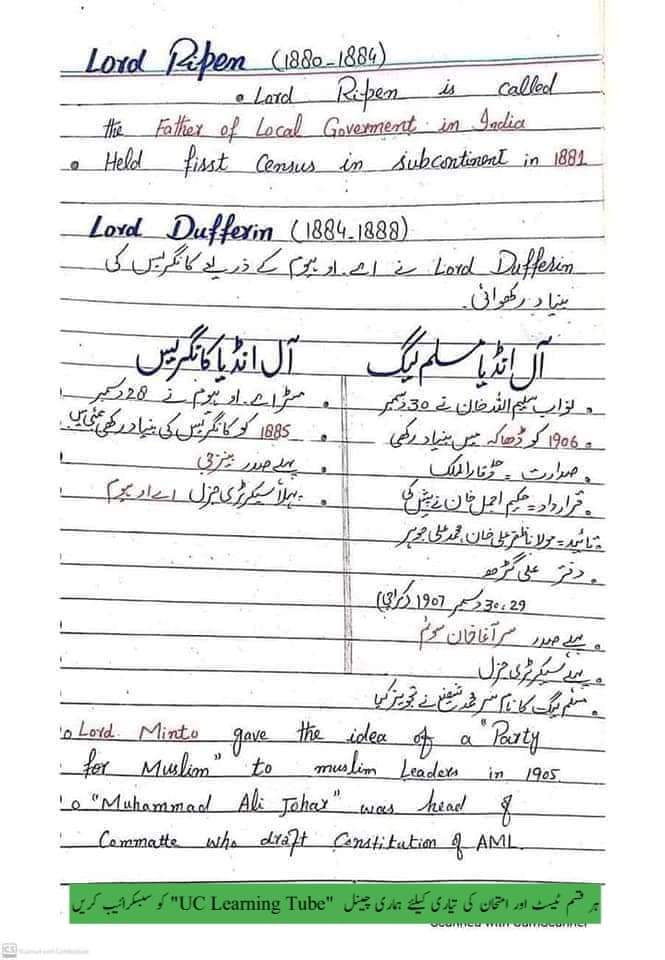 Lord Ripen (1880-1884)
• Lord Ripen is called
the Father of Local Goverment in India
• Held fisst Census in subcontinent in 1881
Lord Dufferin (1884-1888)
Lord Dufferin نے اے۔او ہیوم کے ذریعے کانگریس کی
بنیاد رکھوائی۔
آل انڈیا مسلم لیگ
• نواب سلیم اللہ خان نے 30 دسمبر
• 1906 کو ڈھاکہ میں بنیاد رکھی
• صدارت = وقار الملک
• قرارداد = حکیم اجمل خان نے پیش کی
• تائید = مولانا ظفر علی خان، محمد علی جوہر
• دفتر علی گڑھ
29، 30 دسمبر 1907 (کراچی)
• پہلے صدر سر آغا خان سوئم
• پہلے سیکریٹری جنرل
• مسلم لیگ کا نام سر محمد شفیع نے تجویز کیا
آل انڈیا کانگریس
• مسٹر اے۔او ہیوم نے 28 دسمبر
• 1885 کو کانگریس کی بنیاد رکھی
• پہلے صدر بینرجی
• پہلا سیکریٹری جنرل اے او ہیوم
• Lord Minto gave the idea of a "Party
for Muslim" to muslim Leaders in 1905
• "Muhammad Ali Johar" was head of
Committe who draft Constitution of AML.
ہر قسم ٹیسٹ اور امتحان کی تیاری کیلئے ہماری چینل "UC Learning Tube" کو سبسکرائیب کریں
Scanned with CamScanner
CS Scanned with CamScanner